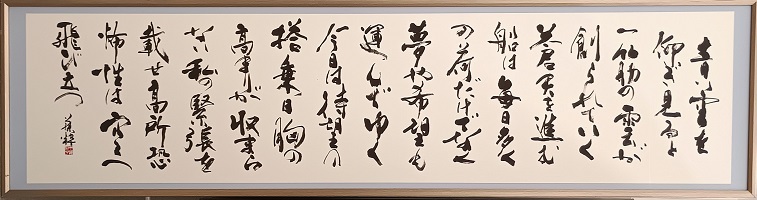 青い空を
仰ぎ見ると
一筋の雲が
創られていく
蒼天を進む
船は毎日多く
の荷だけでなく
夢や希望も
運んでゆく
今日は待望の
搭乗日胸の
高まりが収まら
ない私の緊張を
載せ高所恐
怖性は空へ
飛び立つ